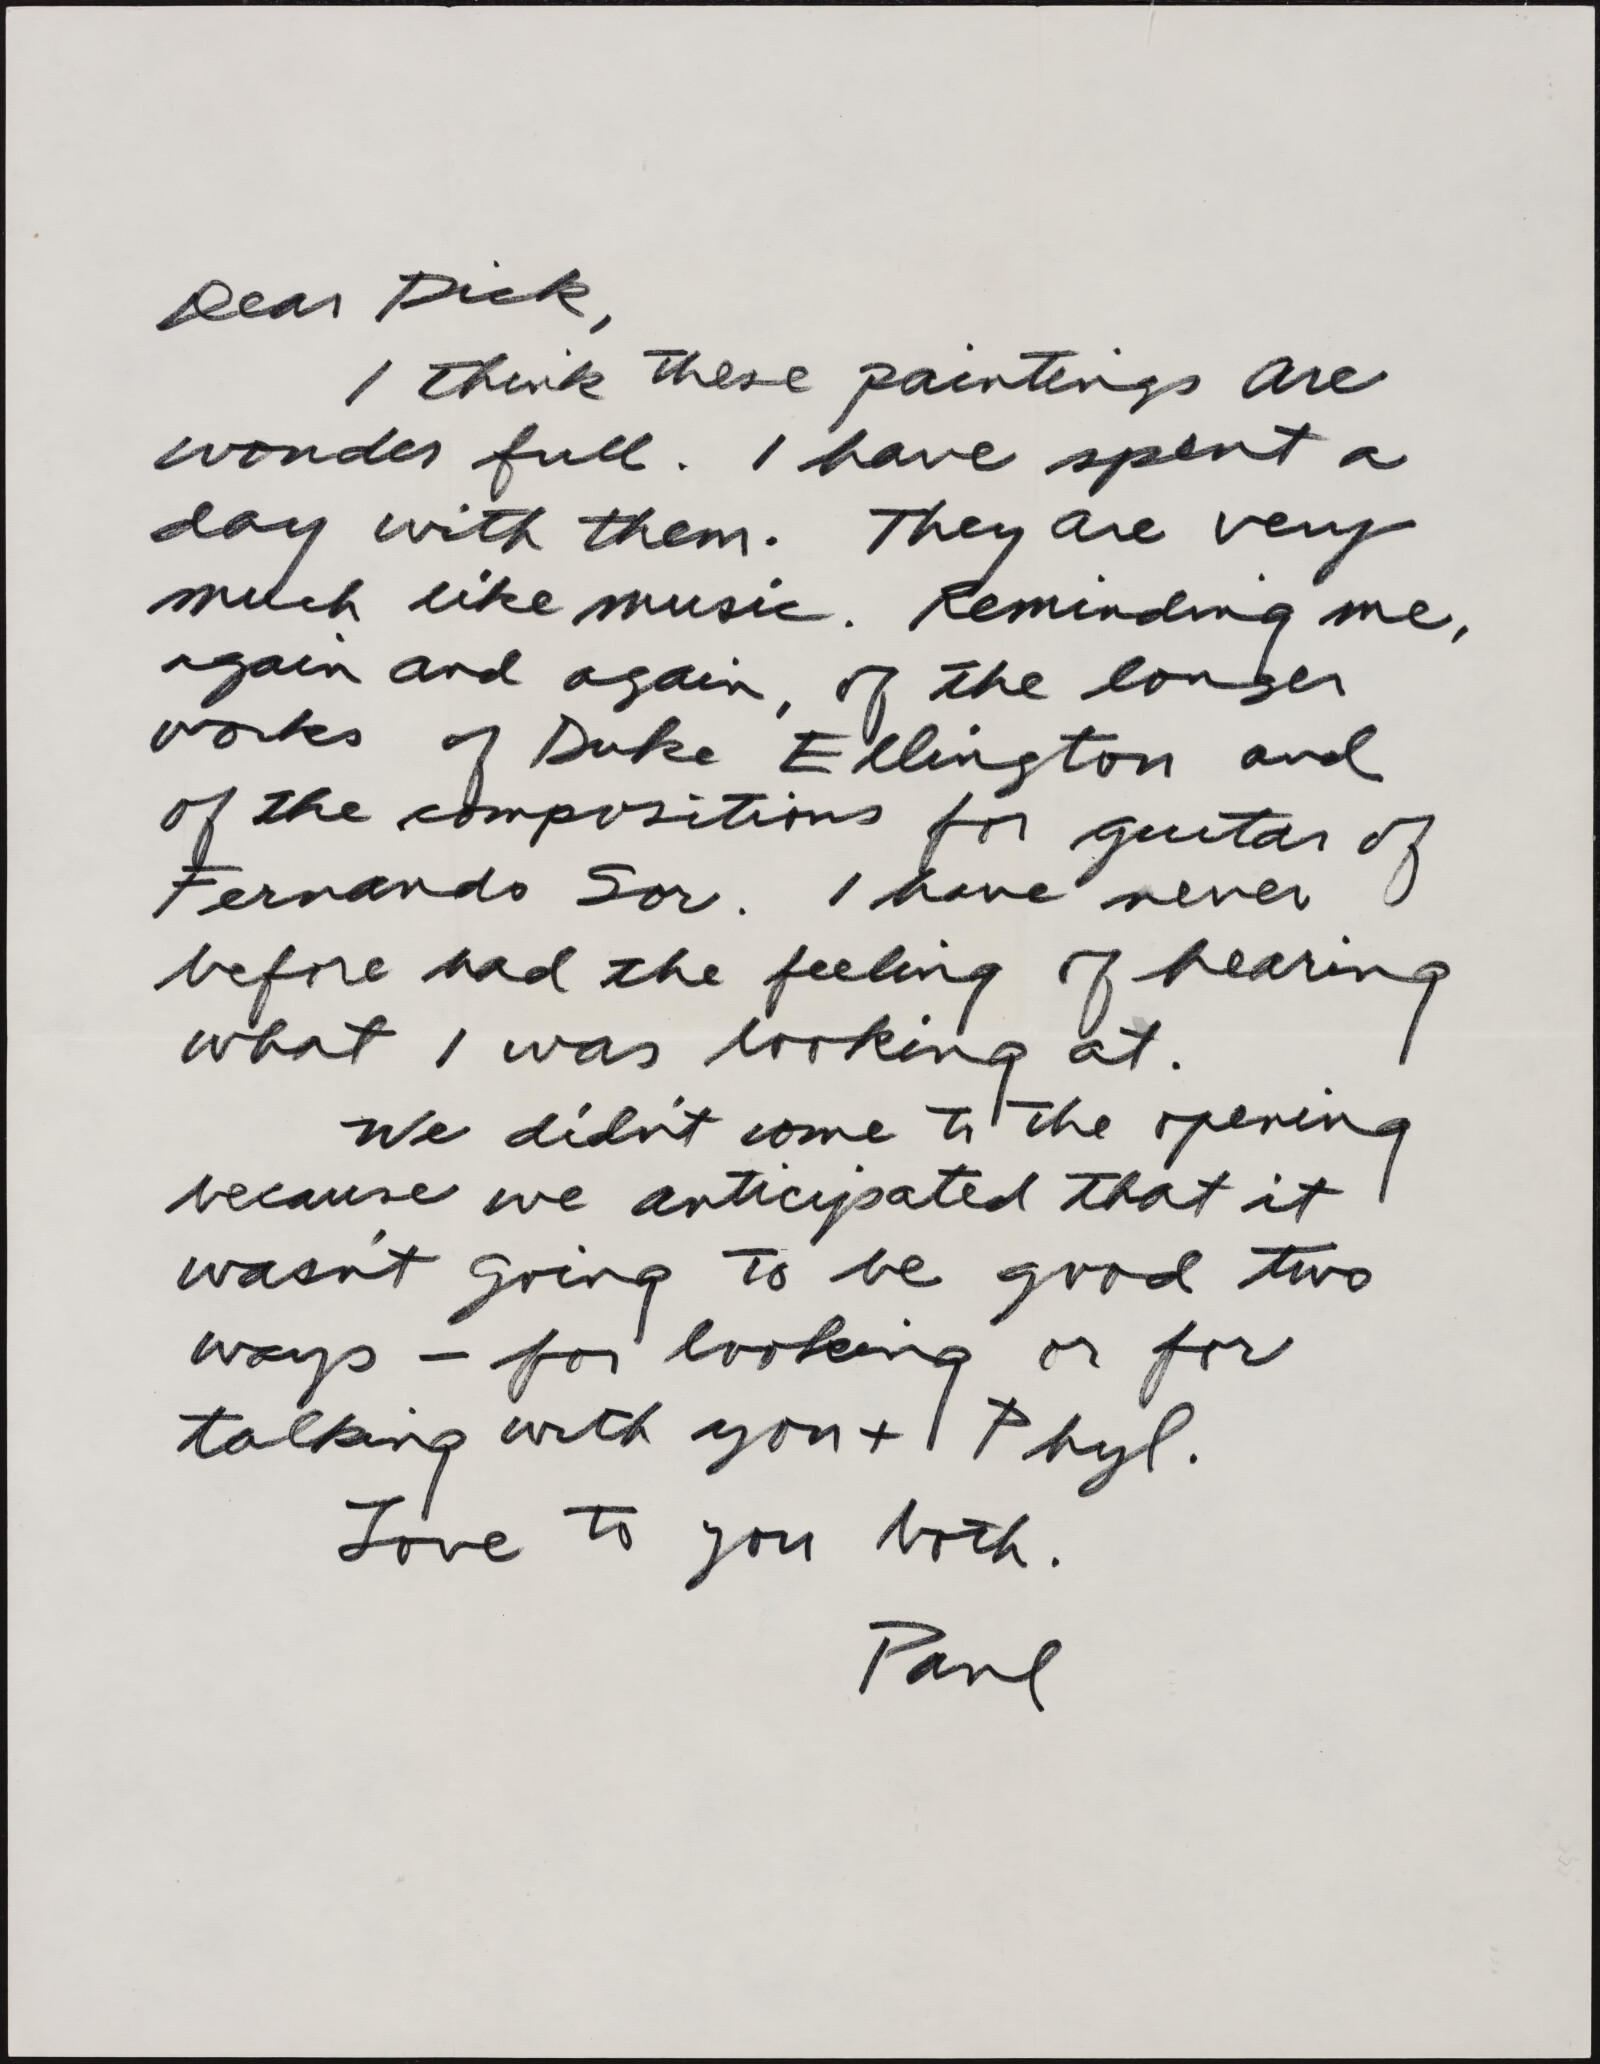 Dear Dick,
I think these paintings are
wonder full. I have spent a
day with them. They are very
much like music. Reminding me,
again and again, of the longer
works of Duke Ellington and
of the compositions for guitar of
Fernando Sor. I have never
before had the feeling of hearing
what I was looking at.
We didn't come to the opening
because we anticipated that it
wasn't going to be good two
ways – for looking or for
talking with you + Phyl.
Love to you both.
Paul